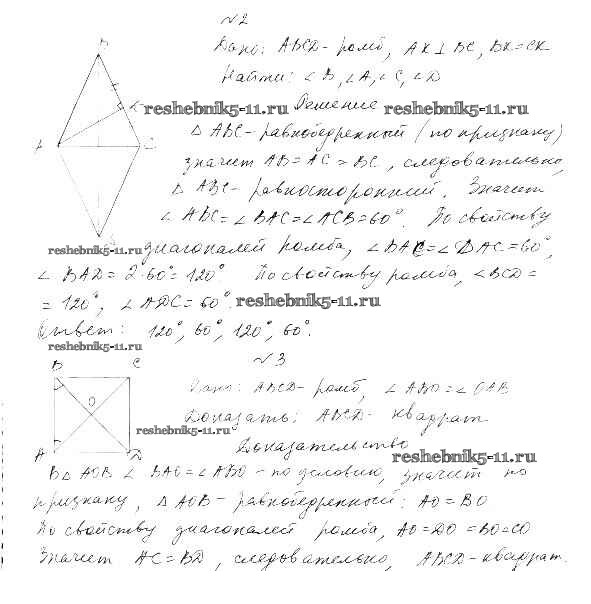 №2
Дано: ABCD - ромб, AK ⊥ BC, BK = CK
Найти: ∠B, ∠A, ∠C, ∠D
Решение
reshebnik5-11.ru reshebnik5-11.ru
△ABC - равнобедренный (по признаку)
значит AB = AC = BC, следовательно,
△ABC - равносторонний. Значит
∠ABC = ∠BAC = ∠ACB = 60°. По свойству
reshebnik5-11.ru
диагоналей ромба, ∠BAC = ∠DAC = 60°,
∠BAD = 2·60° = 120°. По свойству ромба, ∠BCD =
= 120°, ∠ADC = 60°. reshebnik5-11.ru
Ответ: 120°, 60°, 120°, 60°.
reshebnik5-11.ru
№3
B C
O
A D
Дано: ABCD - ромб, ∠ABO = ∠OAB
Доказать: ABCD - квадрат
reshebnik5-11.ru
Доказательство
reshebnik5-11.ru
В △AOB ∠BAO = ∠ABO - по условию, значит по
признаку, △AOB - равнобедренный: AO = BO
По свойству диагоналей ромба, AO = DO = BO = CO
Значит AC = BD, следовательно, ABCD - квадрат.